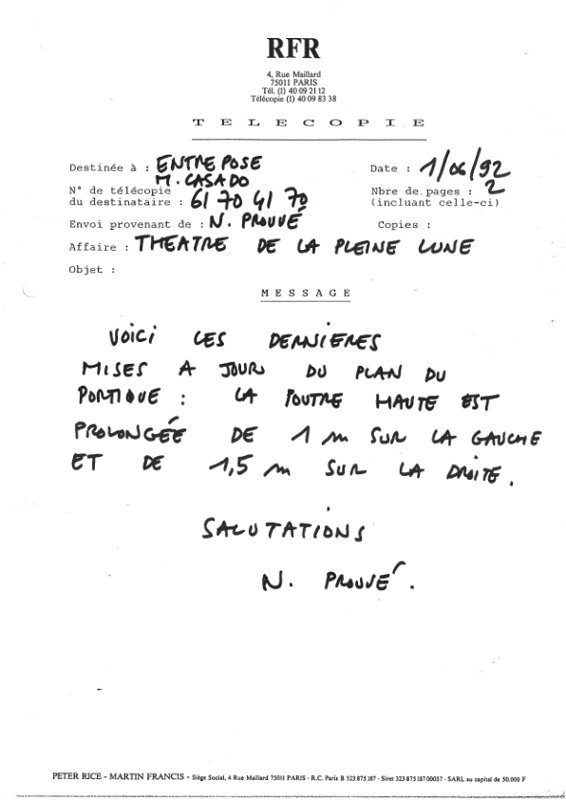 RFR
4, Rue Maillard
75011 PARIS
Tél. (1) 40 09 21 12
Télécopie (1) 40 09 83 38
TELECOPIE
Destinée à : ENTREPOSE
M. CASADO
Date : 1/06/92
N° de télécopie
du destinataire : 61 70 41 70
Nbre de pages : 2
(incluant celle-ci)
Envoi provenant de : N. PROUVÉ
Copies :
Affaire : THEATRE DE LA PLEINE LUNE
Objet :
MESSAGE
VOICI LES DERNIERES
MISES A JOUR DU PLAN DU
PORTIQUE : LA POUTRE HAUTE EST
PROLONGÉE DE 1 m SUR LA GAUCHE
ET DE 1,5 m SUR LA DROITE.
SALUTATIONS
N. PROUVÉ.
PETER RICE - MARTIN FRANCIS - Siège Social, 4 Rue Maillard 75011 PARIS - R.C. Paris B 323 875 187 - Siret 323 875 187 00037 - SARL au capital de 50.000 F